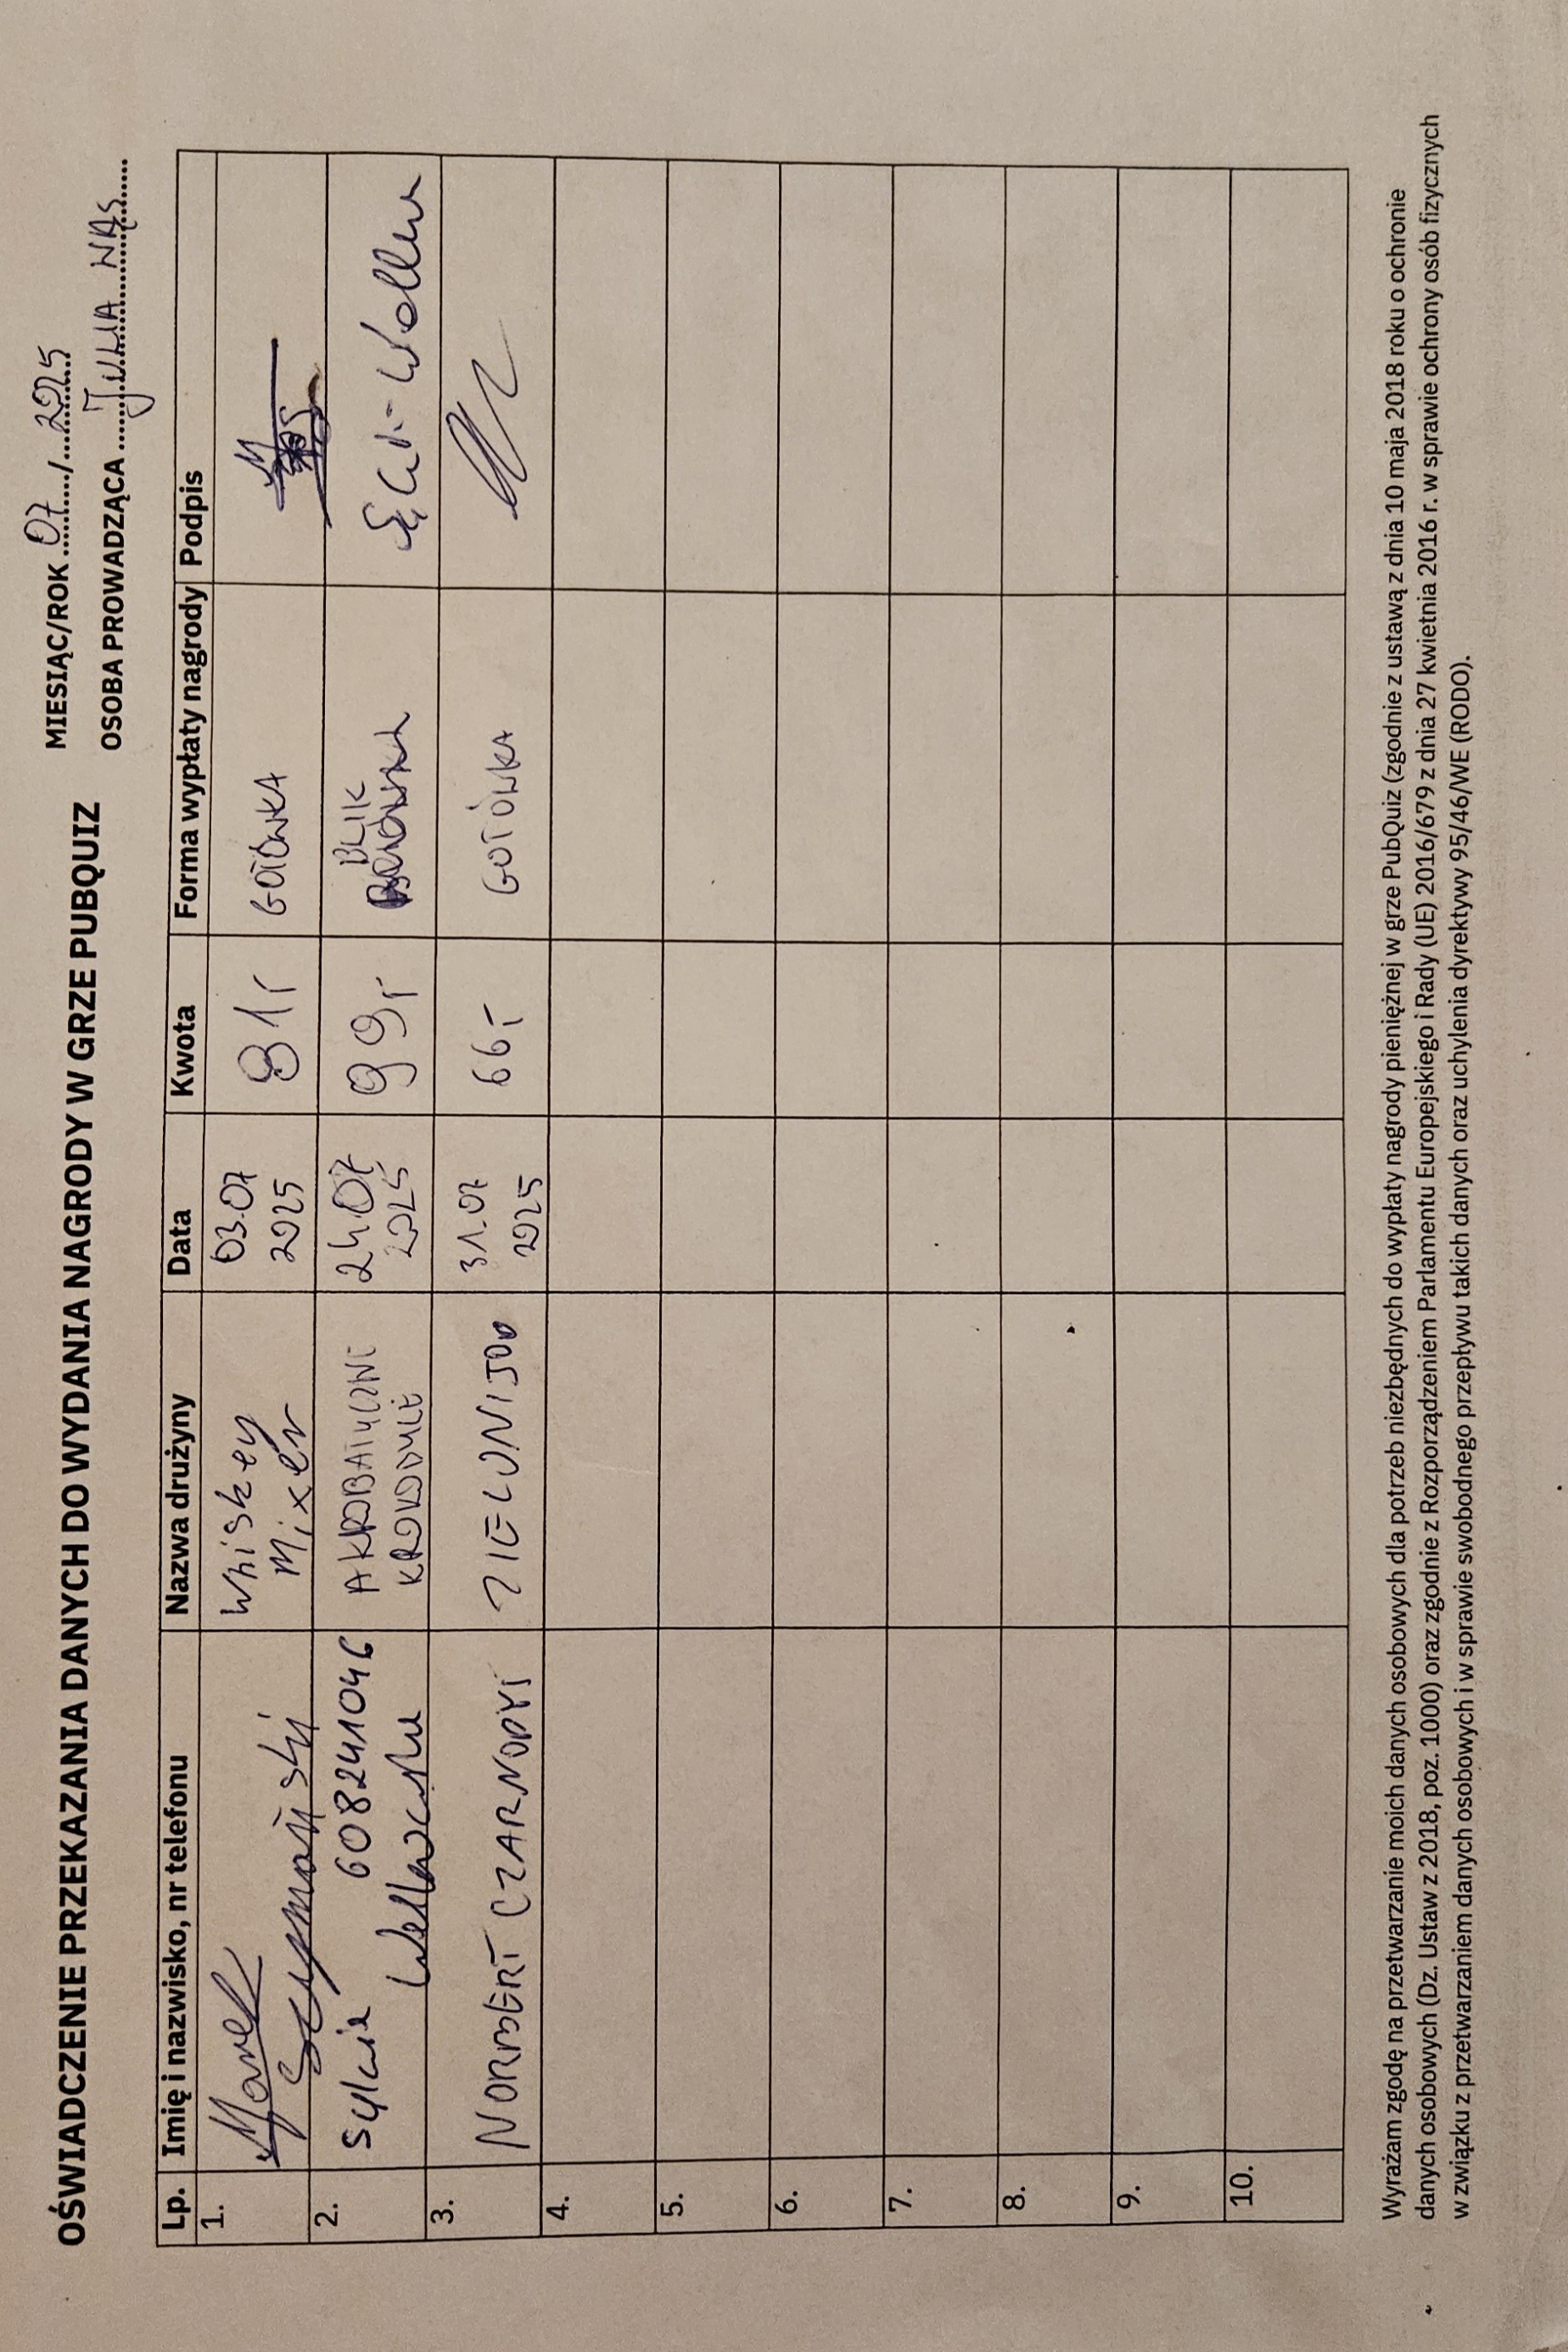 OŚWIADCZENIE PRZEKAZANIA DANYCH DO WYDANIA NAGRODY W GRZE PUBQUIZ
MIESIĄC/ROK 07/2025
OSOBA PROWADZĄCA JULIA WĄS
Lp. Imię i nazwisko, nr telefonu Nazwa drużyny Data Kwota Forma wypłaty nagrody Podpis
1. Marek Whiskey 03.07 81,- GOTÓWKA
Szymański Mixer 2025
2. Sylwia 608241046 AKROBATYCZNE 24.07 99,- BLIK
KROKODYLE 2025
3. NORBERT CZARNOPYŚ ZIELONIJOO 31.07 66,- GOTÓWKA
2025
4.
5.
6.
7.
8.
9.
10.
Wyrażam zgodę na przetwarzanie moich danych osobowych dla potrzeb niezbędnych do wypłaty nagrody pieniężnej w grze PubQuiz (zgodnie z ustawą z dnia 10 maja 2018 roku o ochronie
danych osobowych (Dz. Ustaw z 2018, poz. 1000) oraz zgodnie z Rozporządzeniem Parlamentu Europejskiego i Rady (UE) 2016/679 z dnia 27 kwietnia 2016 r. w sprawie ochrony osób fizycznych
w związku z przetwarzaniem danych osobowych i w sprawie swobodnego przepływu takich danych oraz uchylenia dyrektywy 95/46/WE (RODO).